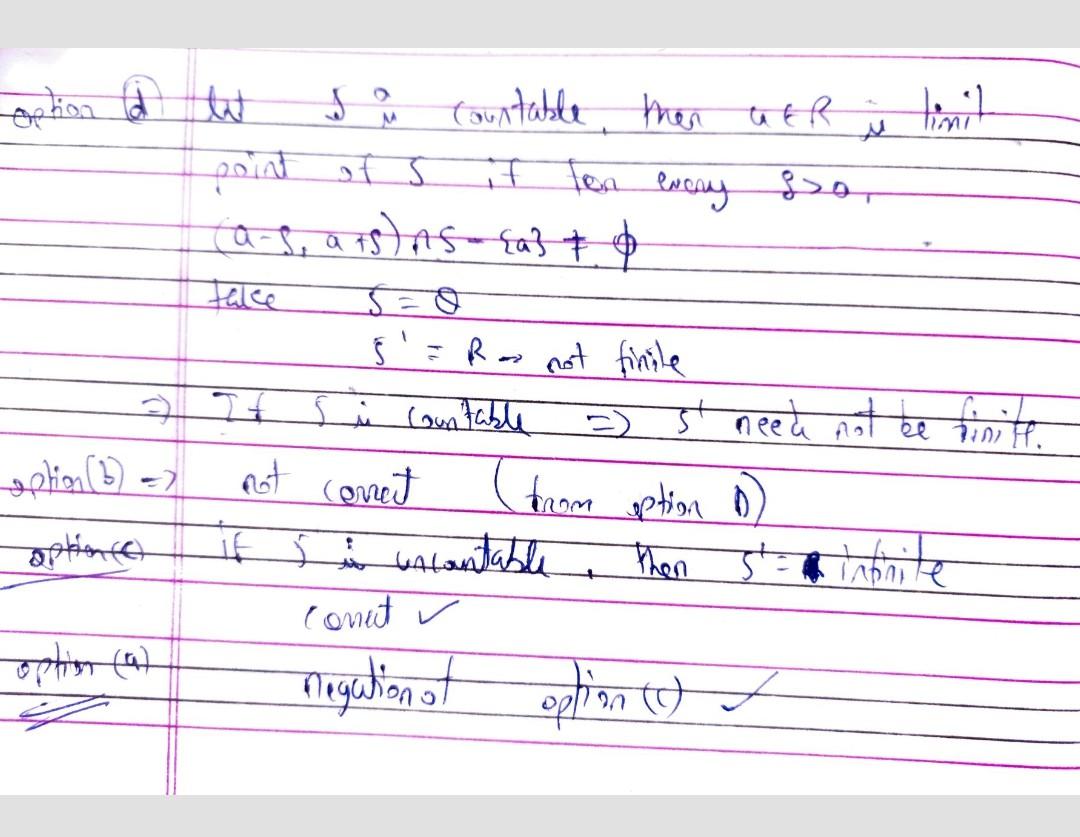 option (d) let S is countable, then a ∈ R is limit
point of S if for every δ>0,
(a-δ, a+δ) ∩ S - {a} ≠ ϕ
take S = Q
S' = R → not finite
⇒ If S is countable ⇒ S' need not be finite.
option(b) ⇒ not correct (from option D)
option(c) if S is uncountable, then S' = infinite
correct ✓
option (a) negation of option (c) ✓